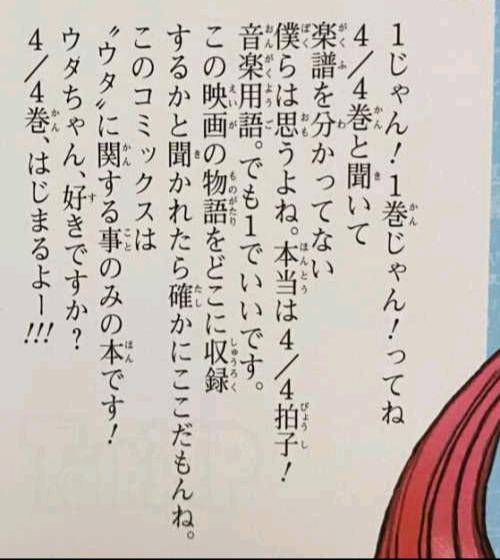 1じゃん！1巻じゃん！ってね
4/4巻と聞いて
楽譜を分かってない
僕らは思うよね。本当は4/4拍子！
音楽用語。でも1でいいです。
この映画の物語をどこに収録
するかと聞かれたら確かにここだもんね。
このコミックスは
〝ウタ〟に関する事のみの本です！
ウタちゃん、好きですか？
4/4巻、はじまるよー!!!